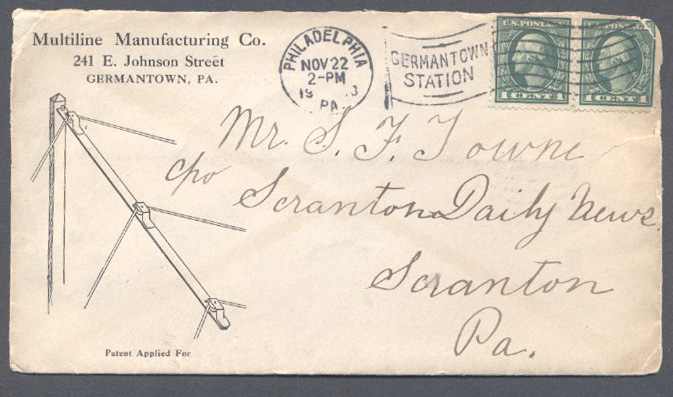 Multiline Manufacturing Co.
241 E. Johnson Street
GERMANTOWN, PA.
PHILADELPHIA
NOV 22
2-PM
19 3
PA.
GERMANTOWN
STATION
U.S. POSTAGE
1 CENT 1
1 CENT 1
Mr. S. F. Towne
c/o Scranton Daily News
Scranton
Pa.
Patent Applied For